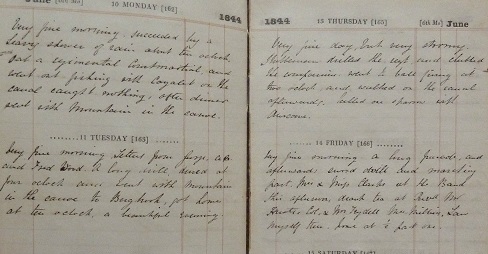 June [6th Mo]
10 MONDAY [162]
1844
Very fine morning succeeded by a
heavy shower of rain about ten oclock,
sat a regimental Courtmartial, and
went out fishing with Cayalet on the
canal caught nothing, after dinner
went with Mountain in the canoe.
11 TUESDAY [163]
Very fine morning. Letters from
and Fred Bond. A long walk, dined at
four oclock and went with Mountain
in the canoe to Burgh, got home
at ten oclock, a beautiful evening.
1844
13 THURSDAY [165]
[6th Mo] June
Very fine day, but very strong.
drilled the regt and clubbed
the companies went to ball firing at
two oclock and walked on the canal
afterwards, rested on sparm with
14 FRIDAY [166]
Very fine morning a long parade, and
afterwards sword drill and marching
past. Mr & Miss Clarke at the Band
this afternoon, drank tea at
Hunter, Ed. & Mrs Mr Law
myself then home at ½ past
15 SATURDAY [167]